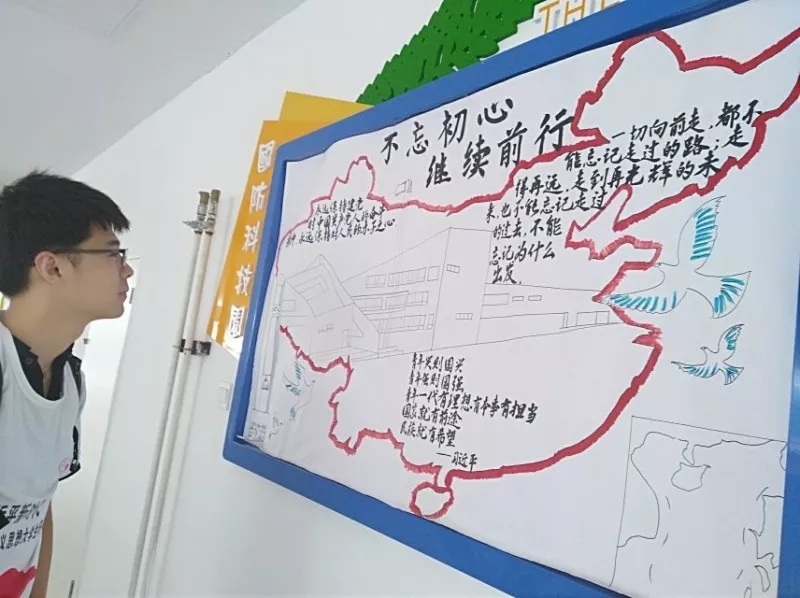 THE
國防科技園
不忘初心
继续前行
一切向前走,都不
能忘记走过的路;走
得再远、走到再光辉的未
来,也不能忘记走过
的过去,不能
忘记为什么
出发。
永远保持建党
时中国共产党人的奋斗
精神,永远保持对人民的赤子之心
青年兴则国兴
青年强则国强
青年一代有理想有本事有担当
国家就有前途
民族就有希望
——习近平
义思想大学生